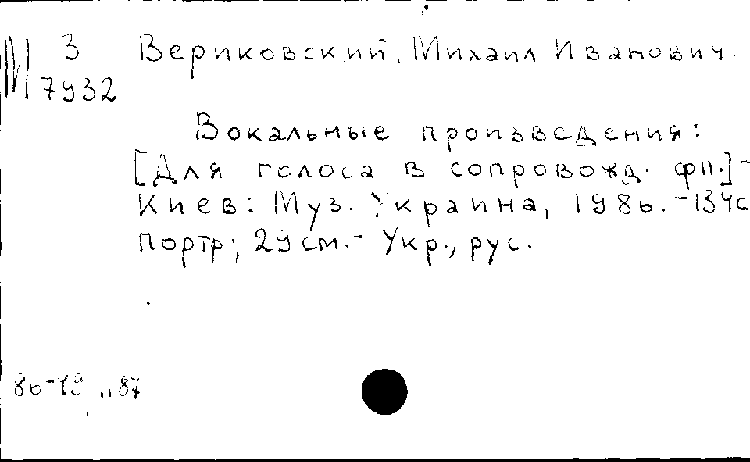 М З Вериковский, Михаил Иванович.
7932
Вокальные произведения:
[Для голоса в сопровожд. фп.]-
Киев: Муз. Украина, 1986.-134с
портр; 29см.- Укр., рус.
87